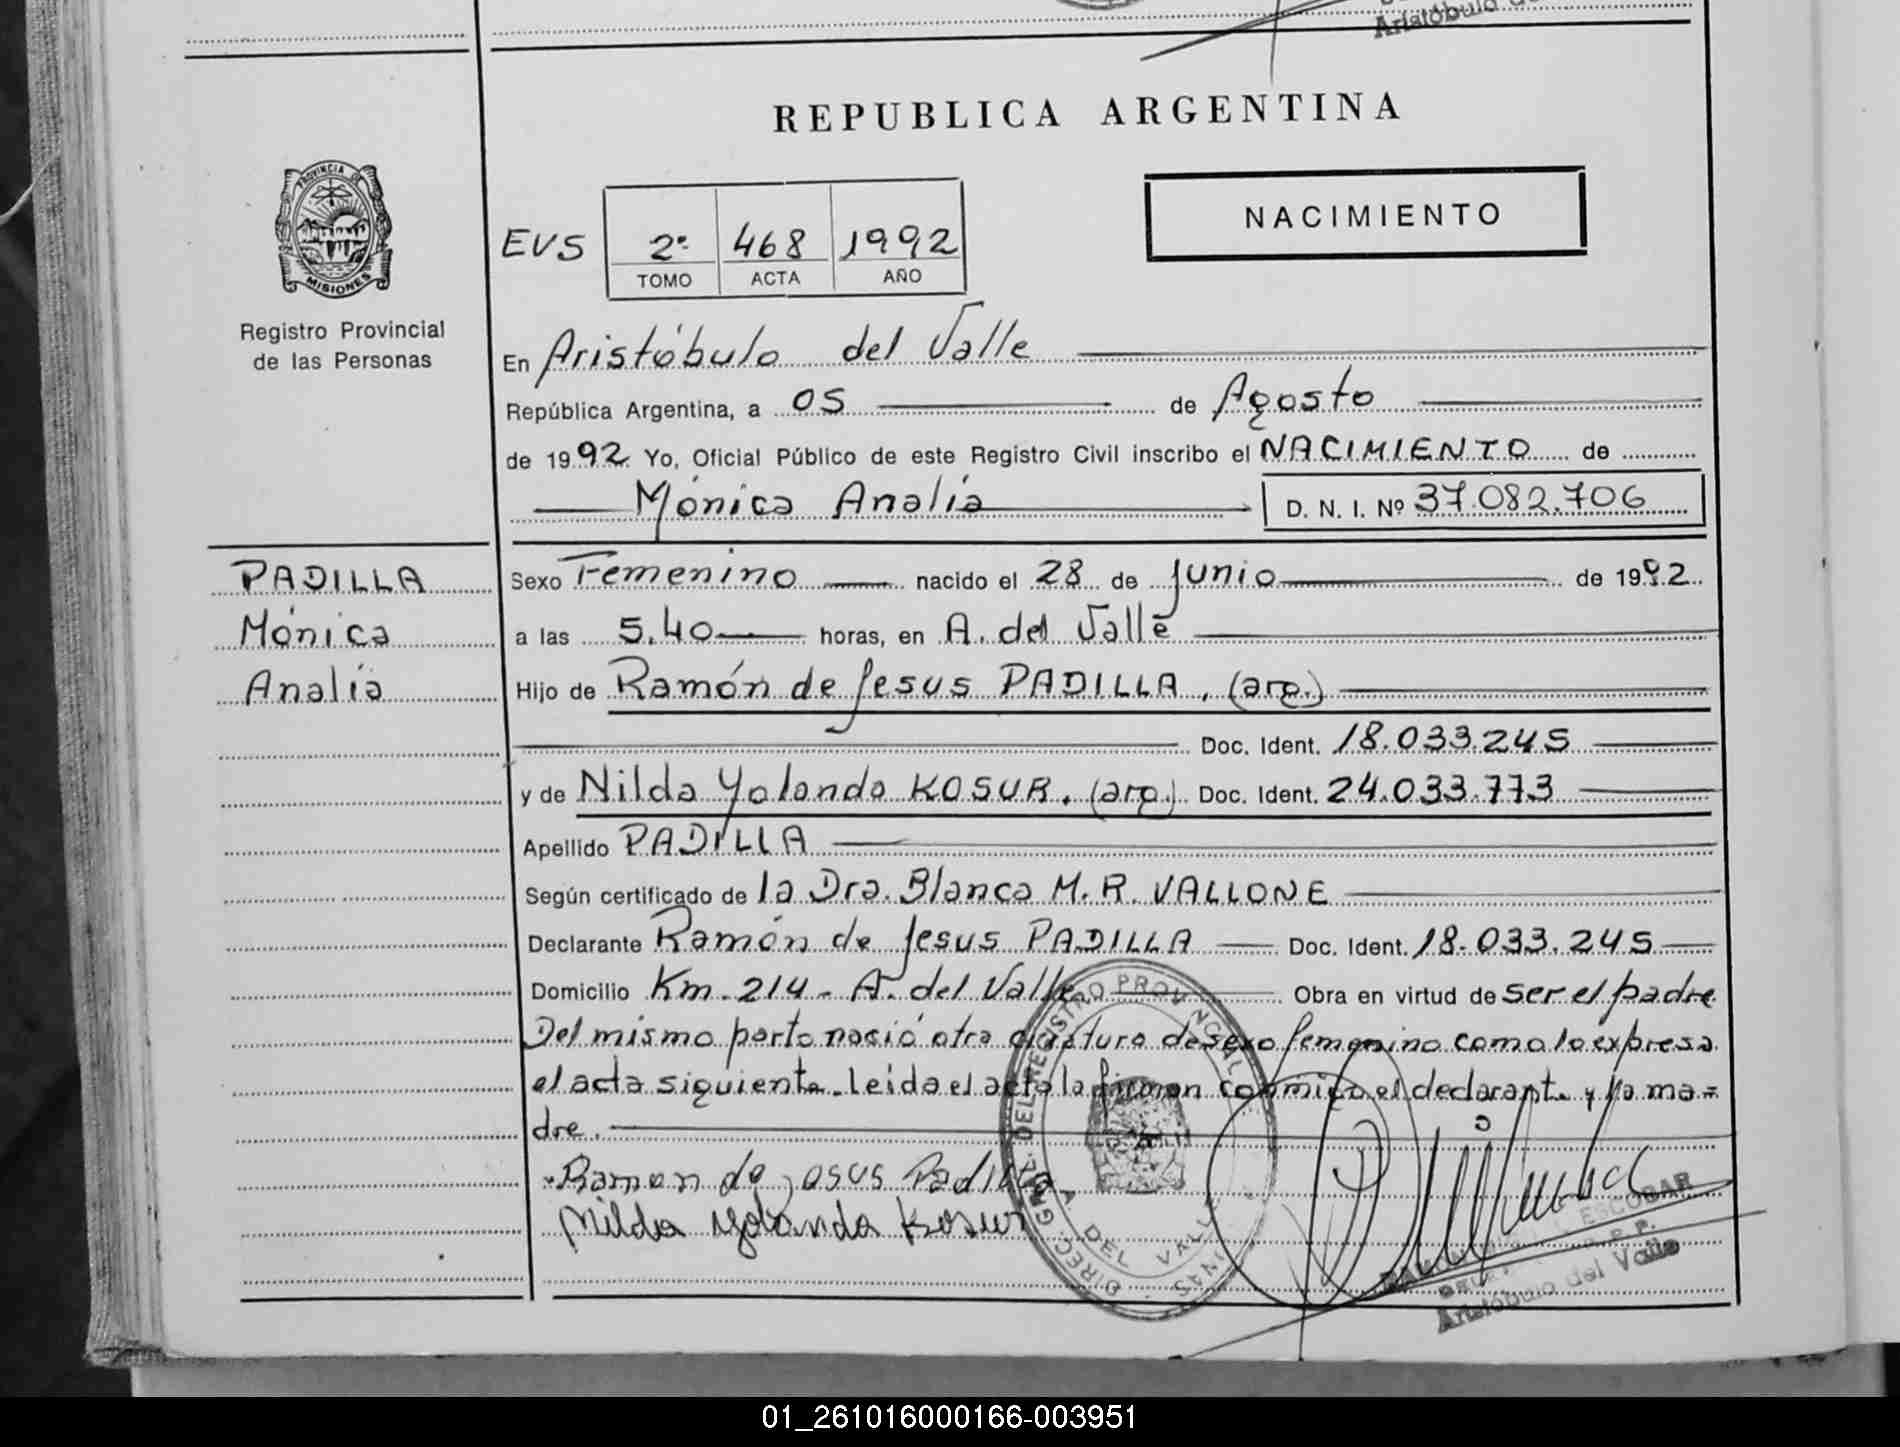 Aristóbulo
REPUBLICA ARGENTINA
PROVINCIA DE
MISIONES
Registro Provincial
de las Personas
NACIMIENTO
EVS 2º 468 1992
TOMO ACTA AÑO
En Aristóbulo del Valle
República Argentina, a 05 de Agosto
de 1992 Yo, Oficial Público de este Registro Civil inscribo el NACIMIENTO de
Mónica Analía D. N. I. Nº 37.082.706
PADILLA
Mónica
Analía
Sexo Femenino nacido el 28 de Junio de 1992
a las 5.40 horas, en A. del Valle
Hijo de Ramón de Jesus PADILLA. (arg.)
Doc. Ident. 18.033.245
y de Nilda Yolanda KOSUR. (arg.) Doc. Ident. 24.033.773
Apellido PADILLA
Según certificado de la Dra. Blanca M. R. VALLONE
Declarante Ramón de Jesus PADILLA Doc. Ident. 18.033.245
Domicilio Km. 214 - A. del Valle Obra en virtud de ser el padre
Del mismo parto nació otra criatura de sexo femenino como lo expresa
el acta siguiente. Leida el acta la firman conmigo el declarante y la ma=
dre.
Ramon de Jesus Padilla
Nilda Yolanda Kosur
DIREC. GRAL. DEL REGISTRO PROVINCIAL
A. DEL VALLE
ESCOBAR
Aristóbulo del Valle
01_261016000166-003951